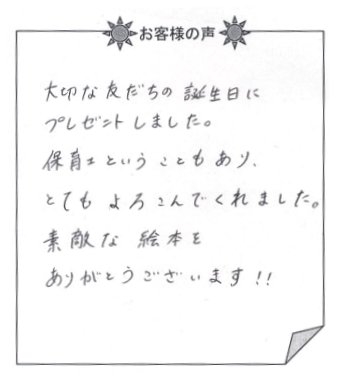 お客様の声
大切な友だちの誕生日に
プレゼントしました。
保育士ということもあり、
とてもよろこんでくれました。
素敵な絵本を
ありがとうございます!!